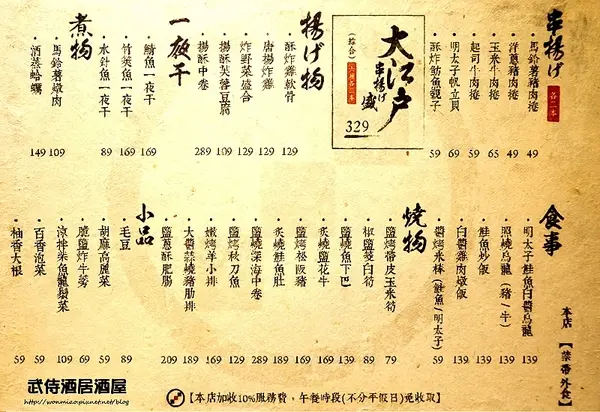 串揚げ 各二本
馬鈴薯豬肉捲 49
洋蔥豬肉捲 49
玉米牛肉捲 65
起司牛肉捲 59
明太子帆立貝 69
酥炸魴魚親子 59
大江戶
串揚げ
盛
(綜合)
329
揚げ物
酥炸雞軟骨 129
唐揚炸雞 129
炸野菜盛合 129
揚酥芙蓉豆腐 109
揚酥中卷 289
一夜干
鯖魚一夜干 169
竹筴魚一夜干 169
水針魚一夜干 89
煮物
馬鈴薯燉肉 109
酒蒸蛤蠣 149
食事
明太子鮭魚白醬烏龍 139
照燒烏龍(豬/牛) 139
鮭魚炒飯 139
白醬雞肉燉飯 139
醬烤米棒(鮭魚/明太子) 59
燒物
鹽烤帶皮玉米筍 79
椒鹽茭白筍 89
炙燒鹽魚下巴 139
炙燒鹽花牛 169
鹽烤松阪豬 169
炙燒鮭魚肚 189
鹽燒深海中卷 289
鹽烤秋刀魚 129
嫩烤羊小排 169
大醬蒜燒豬肋排 189
鹽蔥酥肥腸 209
小品
毛豆 89
胡麻高麗菜 59
脆鹽炸牛蒡 69
涼拌柴魚龍鬚菜 109
百香泡菜 59
柚香大根 59
本店【禁帶外食】
【本店加收10%服務費，午餐時段(不分平假日)免收取】
武侍酒居酒屋
http://wonmico.pixnet.net/blog